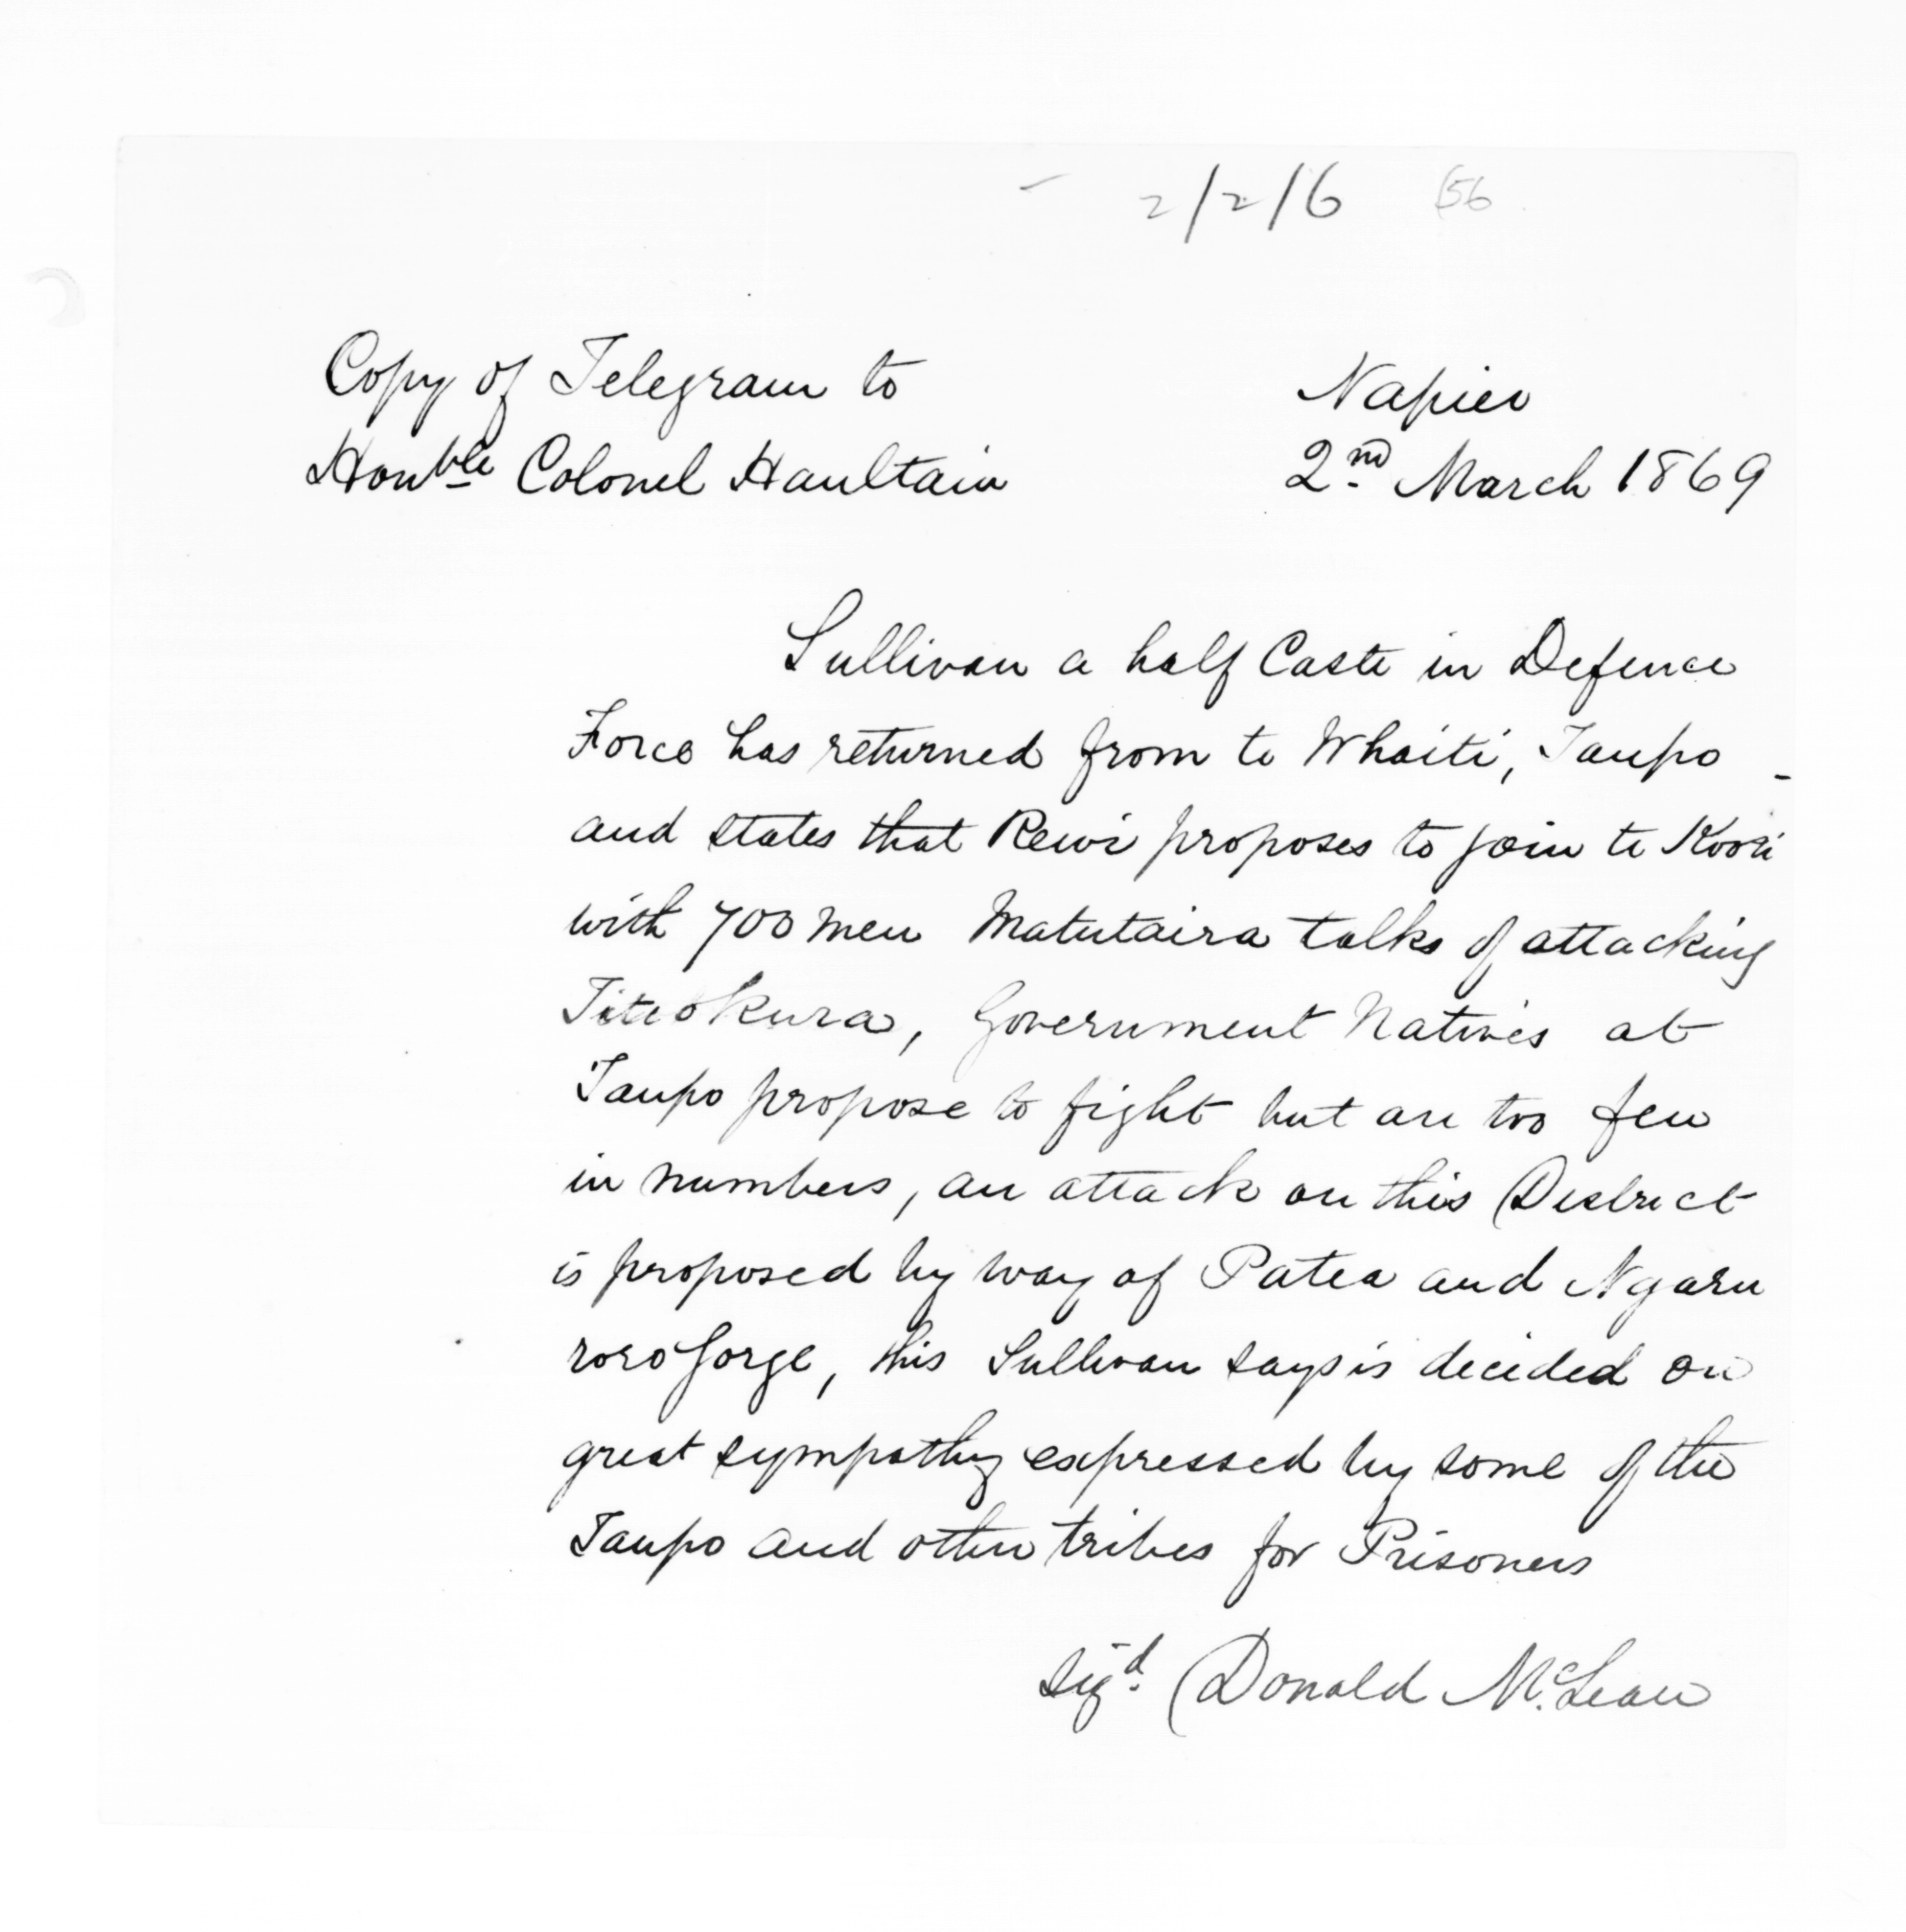 2/2/6 56
Copy of Telegram to
Honble Colonel Haultain
Napier
2nd March 1869
Sullivan a half Caste in Defence
Force has returned from te Whaiti, Taupo -
and states that Rewi proposes to join te Kooti
with 700 men Matutaira talks of attacking
Titeokura, Government Natives at
Taupo propose to fight but are too few
in numbers, an attack on this District
is proposed by way of Patea and Ngaru
roro Gorge, this Sullivan says is decided on
great sympathy expressed by some of the
Taupo and other tribes for Prisoners
Sigd. (Donald McLean